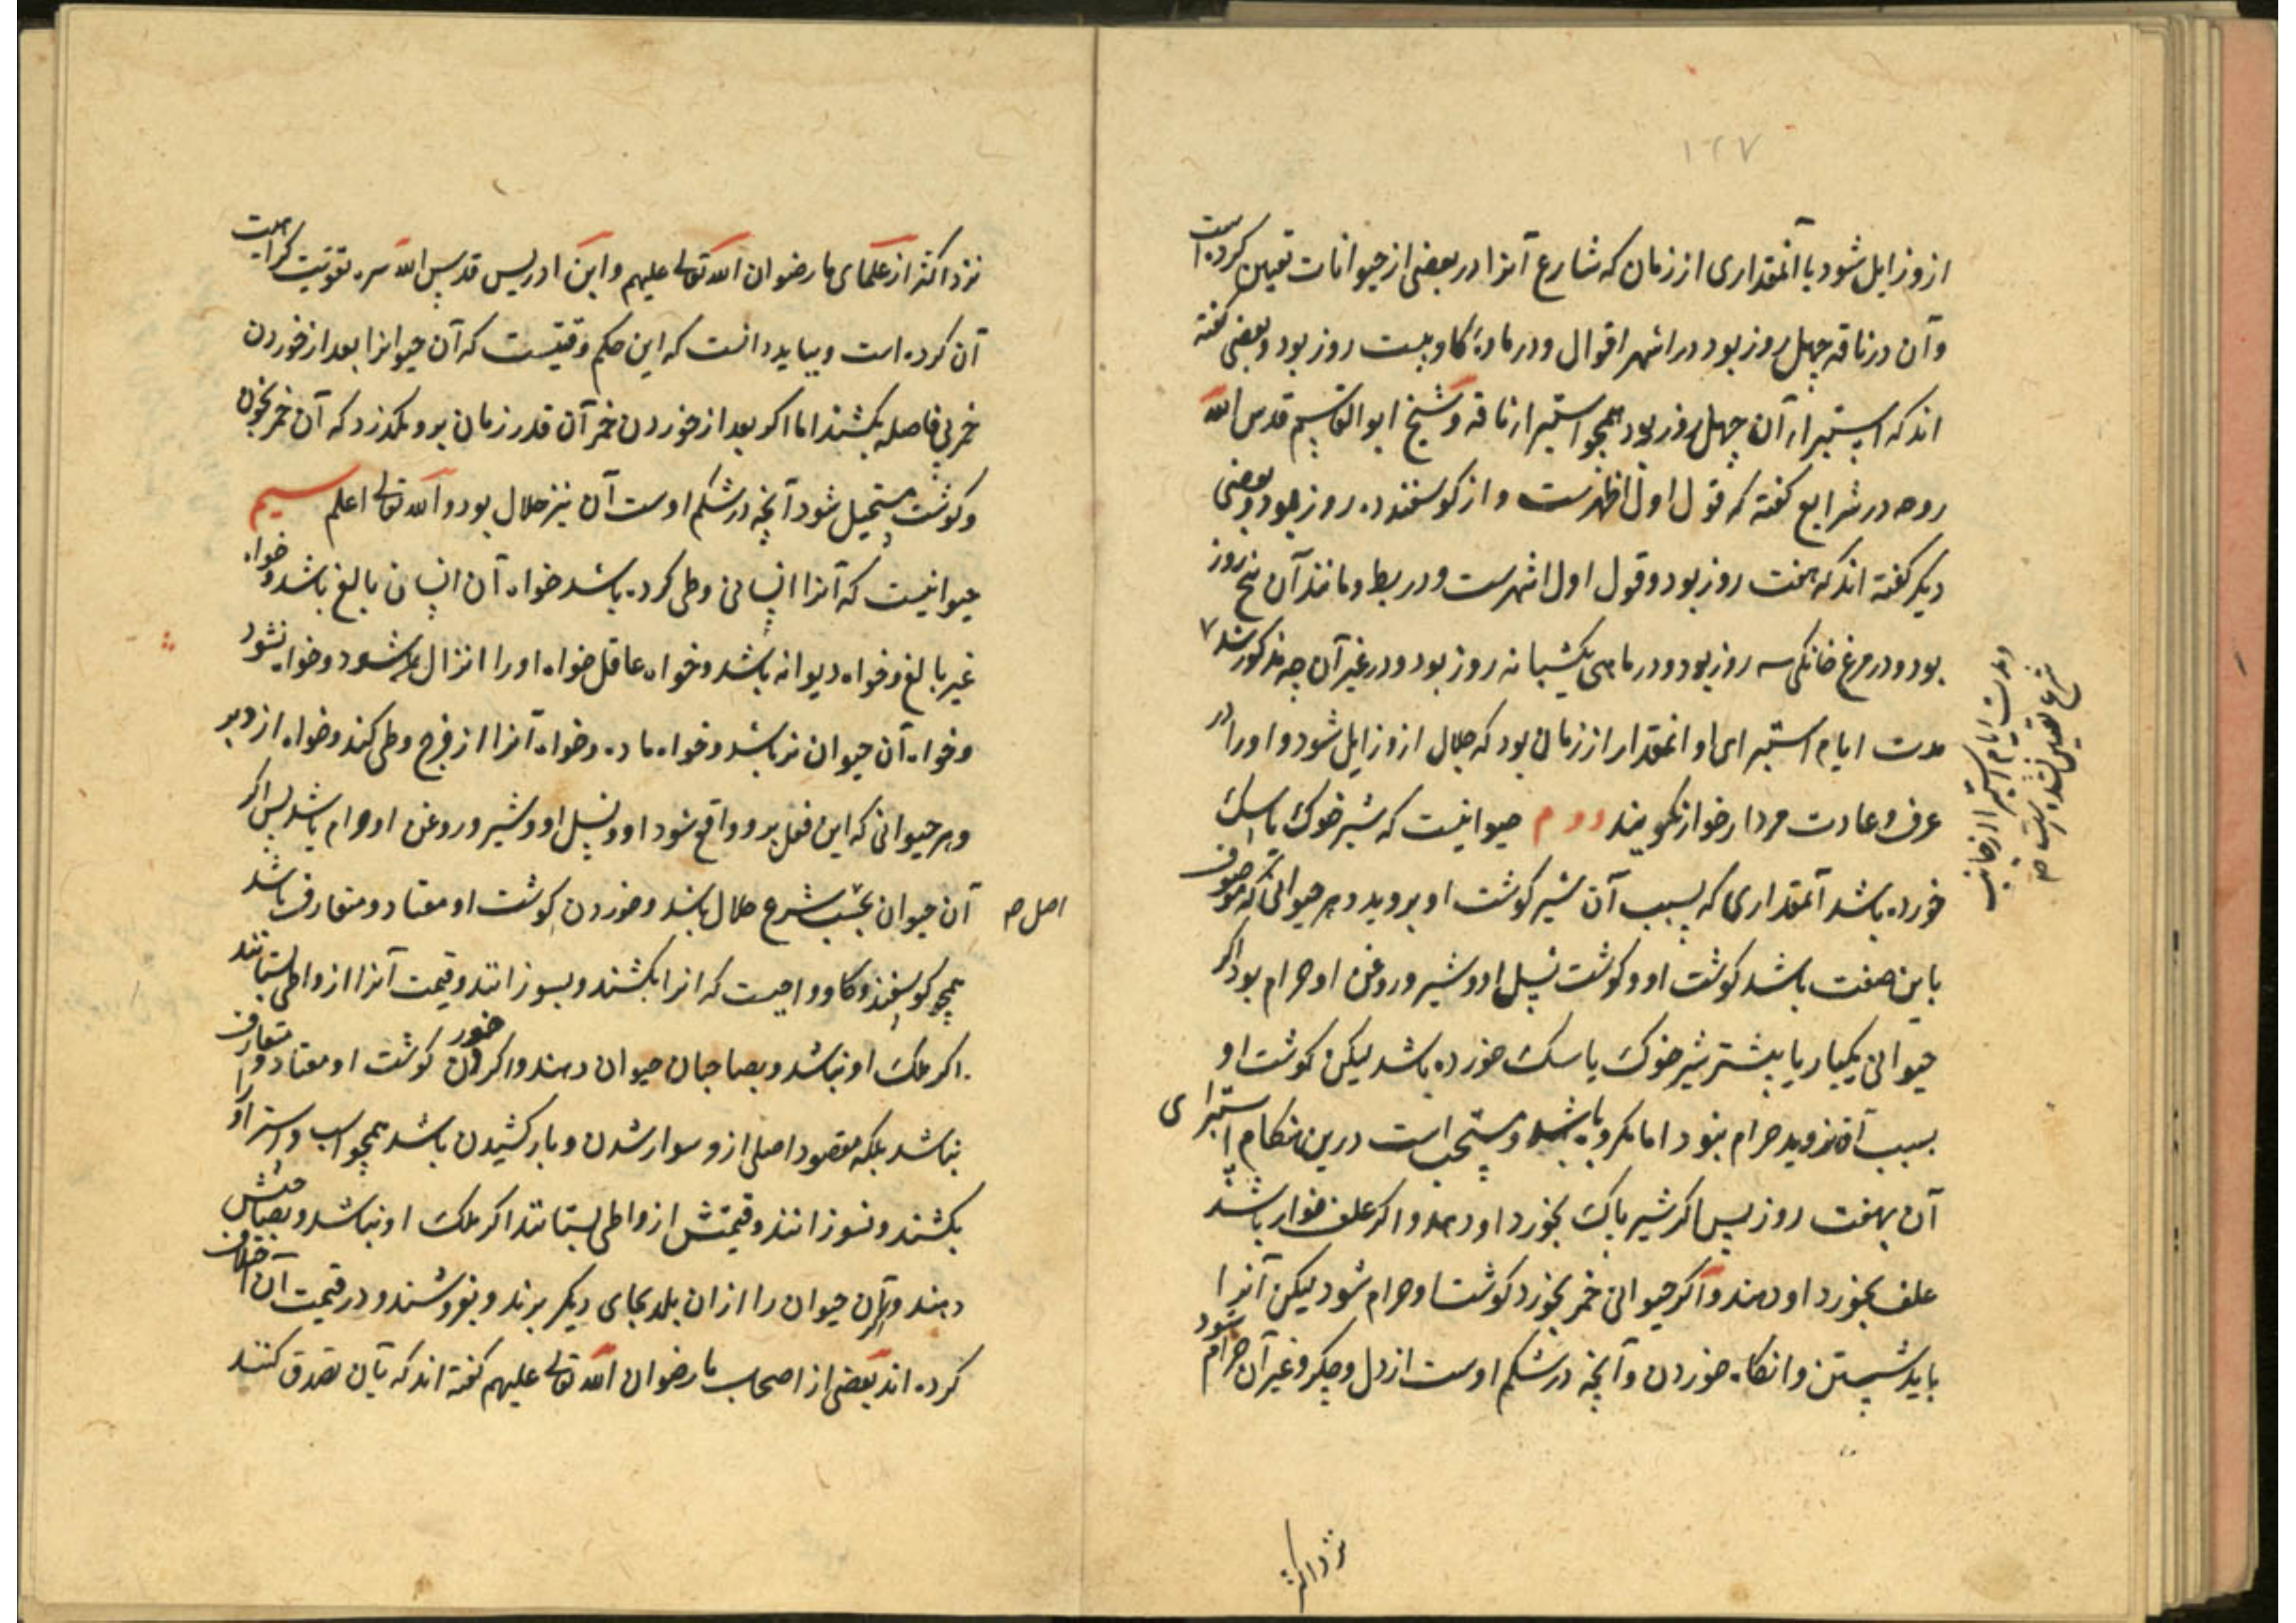 ١٢٧
ازو زایل شود یا آنمقداری از زمان که شارع آنرا در بعضی از حیوانات تعیین کرده است
وآن در ناقه چهل روز بود در اشهر اقوال و در مادهٔ کاو بیست روز بود و بعضی کفته
اند که استبراء آن چهل روز بود همچو استبرا ناقه و شیخ ابو القاسم قدس الله
روحه در شرایع کفته که قول اول اظهرست و از کوسفند ده روز بود و بعضی
دیکر کفته اند که هفت روز بود و قول اول اشهرست و در بط و مانند آن پنج روز
بود و در مرغ خانکی سه روز بود و در ماهی یکشبانه روز بود و در غیر آن چه مذکور شد ٧
مدت ایام استبرای او آنمقدار از زمان بود که جلال ازو زایل شود و او را در
عرف و عادت مردار خوار نکویند دوم حیوانیست که شیر خوک یا سک
خورده باشد آنمقداری که بسبب آن شیر کوشت او بروید و هر حیوانی که موصوف
باین صفت باشد کوشت او و کوشت نسل او و شیر و روغن او حرام بود اکر
حیوانی یکبار یا بیشتر شیر خوک یا سک خورده باشد لیکن کوشت او
بسبب آن نروید حرام نبود اما مکروه باشد و مستحب است درین هنکام استبرای
آن بهفت روز پس اکر شیر پاک بخورد او دهند و اکر علف خوار باشد
علف بخورد او دهند و اکر حیوانی خمر بخورد کوشت او حرام نشود لیکن آنرا
باید شستن و آنکاه خوردن و آنچه در شکم اوست از دل و جکر و غیر آن حرام شود
و مدت ایام استبرا از جانب
شرع تعیین نشده است صح
نزد اکثر
نزد اکثر از علمای ما رضوان الله تعالی علیهم و ابن ادریس قدس الله سره تقویت کراهیت
آن کرده است و بباید دانست که این حکم وقتیست که آن حیوانرا بعد از خوردن
خمر بی فاصله بکشند اما اکر بعد از خوردن خمر آن قدر زمان برو بکذرد که آن خمر بخون
و کوشت مستحیل شود آنچه در شکم اوست آن نیز حلال بود و الله تعالی اعلم سیم
حیوانیست که آنرا انسانی وطی کرده باشد خواه آن انسان بالغ باشد و خواه
غیر بالغ و خواه دیوانه باشد و خواه عاقل خواه او را انزال بشود و خواه نشود
و خواه آن حیوان نر باشد و خواه ماده و خواه آنرا از فرج وطی کند و خواه از دبر
و هر حیوانی که این فعل برو واقع شود او و نسل او و شیر و روغن او حرام باشد پس اکر
آن حیوان بحسب شرع حلال باشد و خوردن کوشت او معتاد و متعارف باشد
اصل صح
همچو کوسفند و کاو واجبست که آنرا بکشند و بسوزانند و قیمت آنرا از واطی بستانند
اکر ملک او نباشد و بصاحبان حیوان دهند و اکر خوردن کوشت او معتاد و متعارف
نباشد بلکه مقصود اصلی ازو سوار شدن و بار کشیدن باشد همچو اسب و استر او را
بکشند و نسوزانند و قیمتش از واطی بستانند اکر ملک او نباشد و بصاحبش
دهند و آن حیوان را از ان بلد بجای دیکر برند و بفروشند و در قیمت آن خلاف
کرده اند بعضی از اصحاب ما رضوان الله تعالی علیهم کفته اند که بآن تصدق کنند